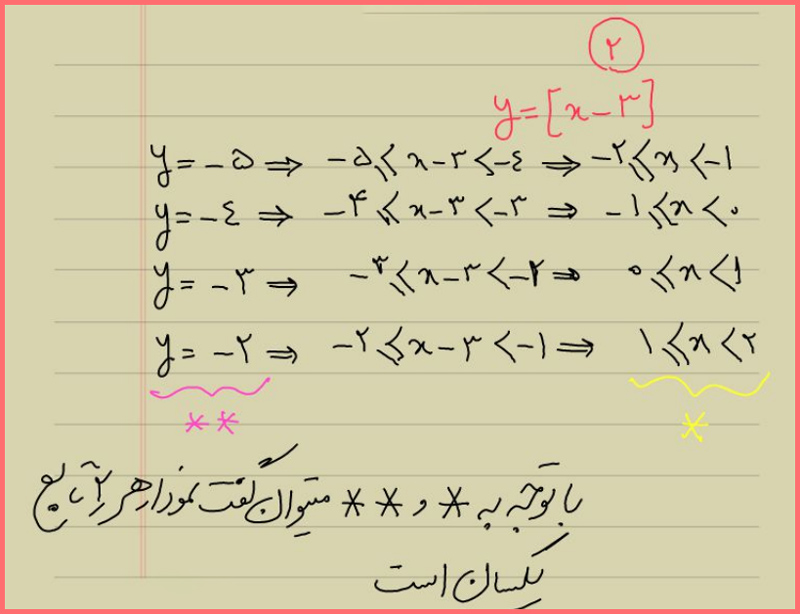 ۲
y = [x - ۳]
y = -۵ ⇒ -۵ ⩽ x - ۳ < -٤ ⇒ -۲ ⩽ x < -۱
y = -٤ ⇒ -۴ ⩽ x - ۳ < -۳ ⇒ -۱ ⩽ x < ۰
y = -۳ ⇒ -۳ ⩽ x - ۳ < -۲ ⇒ ۰ ⩽ x < ۱
y = -۲ ⇒ -۲ ⩽ x - ۳ < -۱ ⇒ ۱ ⩽ x < ۲
** *
با توجه به * و ** میتوان گفت نمودار هر ۲ تابع
یکسان است